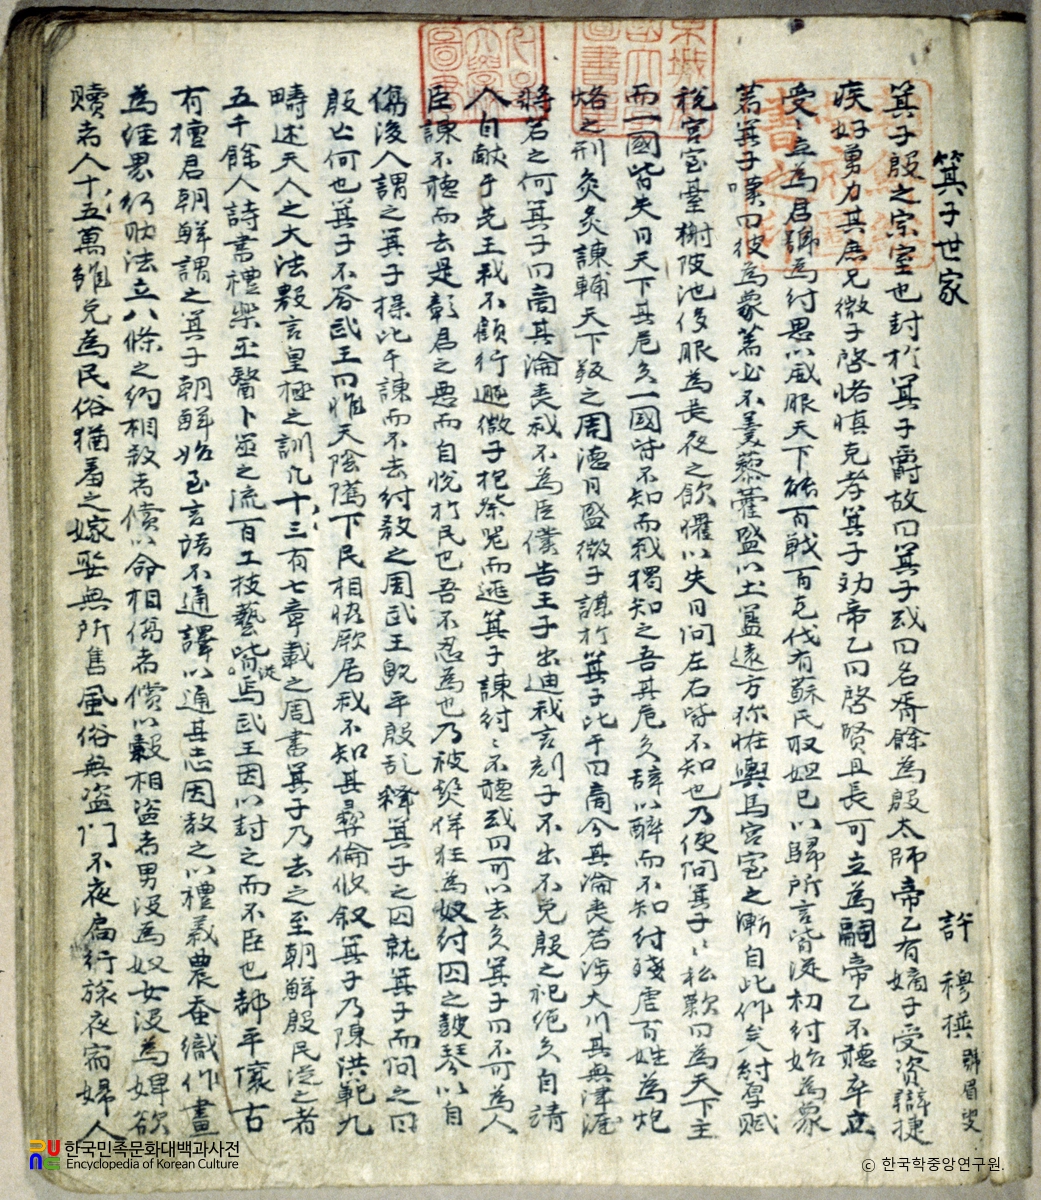 箕子世家 許穆撰 號眉叟
箕子殷之宗室也封於箕子爵故曰箕子或曰名胥餘為殷太師帝乙有嫡子受資辯捷
疾好勇力其庶兄微子啓恪慎克孝箕子勸帝乙曰啓賢且長可立為嗣帝乙不聽卒立
受受立為君號為紂思以威服天下能百戰百克伐有蘇氏取妲己以歸所言皆從初紂始為象
箸箕子嘆曰彼為象箸必不羹藜藿盛以土簋遠方珍恠輿馬宮室之漸自此作矣紂厚賦
稅宮室臺榭陂池侈服為長夜之飲懼以失日問左右皆不知也乃使問箕子箕子私歎曰為天下主
而一國皆失日天下其危矣一國皆不知而我獨知之吾其危矣辭以醉而不知紂殘虐百姓為炮
烙之刑灸諫輔天下叛之周德日盛微子謀於箕子比干曰商今其淪喪若涉大川其無津涯
將若之何箕子曰商其淪喪我不為臣僕告王子出迪我言刻子不出不免殷之祀絕矣自請
人自獻于先王我不顧行遯微子抱祭器而逃箕子諫紂紂不聽或曰可以去矣箕子曰不可為人
臣諫不聽而去是彰君之惡而自悅於民也吾不忍為也乃被髮佯狂為奴紂囚之鼓琴以自
傷後人謂之箕子操比干諫而不去紂殺之周武王旣平殷亂釋箕子之囚就箕子而問之曰
殷亡何也箕子不答武王曰惟天陰騭下民相恊厥居我不知其彝倫攸叙箕子乃陳洪範九
疇述天人之大法敷言皇極之訓凡十三有七章載之周書箕子乃去之至朝鮮殷民從之者
五千餘人詩書禮樂巫醫卜筮之流百工技藝皆從焉武王因以封之而不臣也都平壤古
有檀君朝鮮謂之箕子朝鮮始至言語不通譯以通其志因教之以禮義農蚕織作畫
為經界行助法立八條之約相殺者償以命相傷者償以穀相盜者男沒為奴女沒為婢欲
贖者人十五萬雖免為民俗猶羞之嫁娶無所售風俗無盜門不夜扃行旅夜宿婦人
한국민족문화대백과사전
Encyclopedia of Korean Culture
ⓒ 한국학중앙연구원.